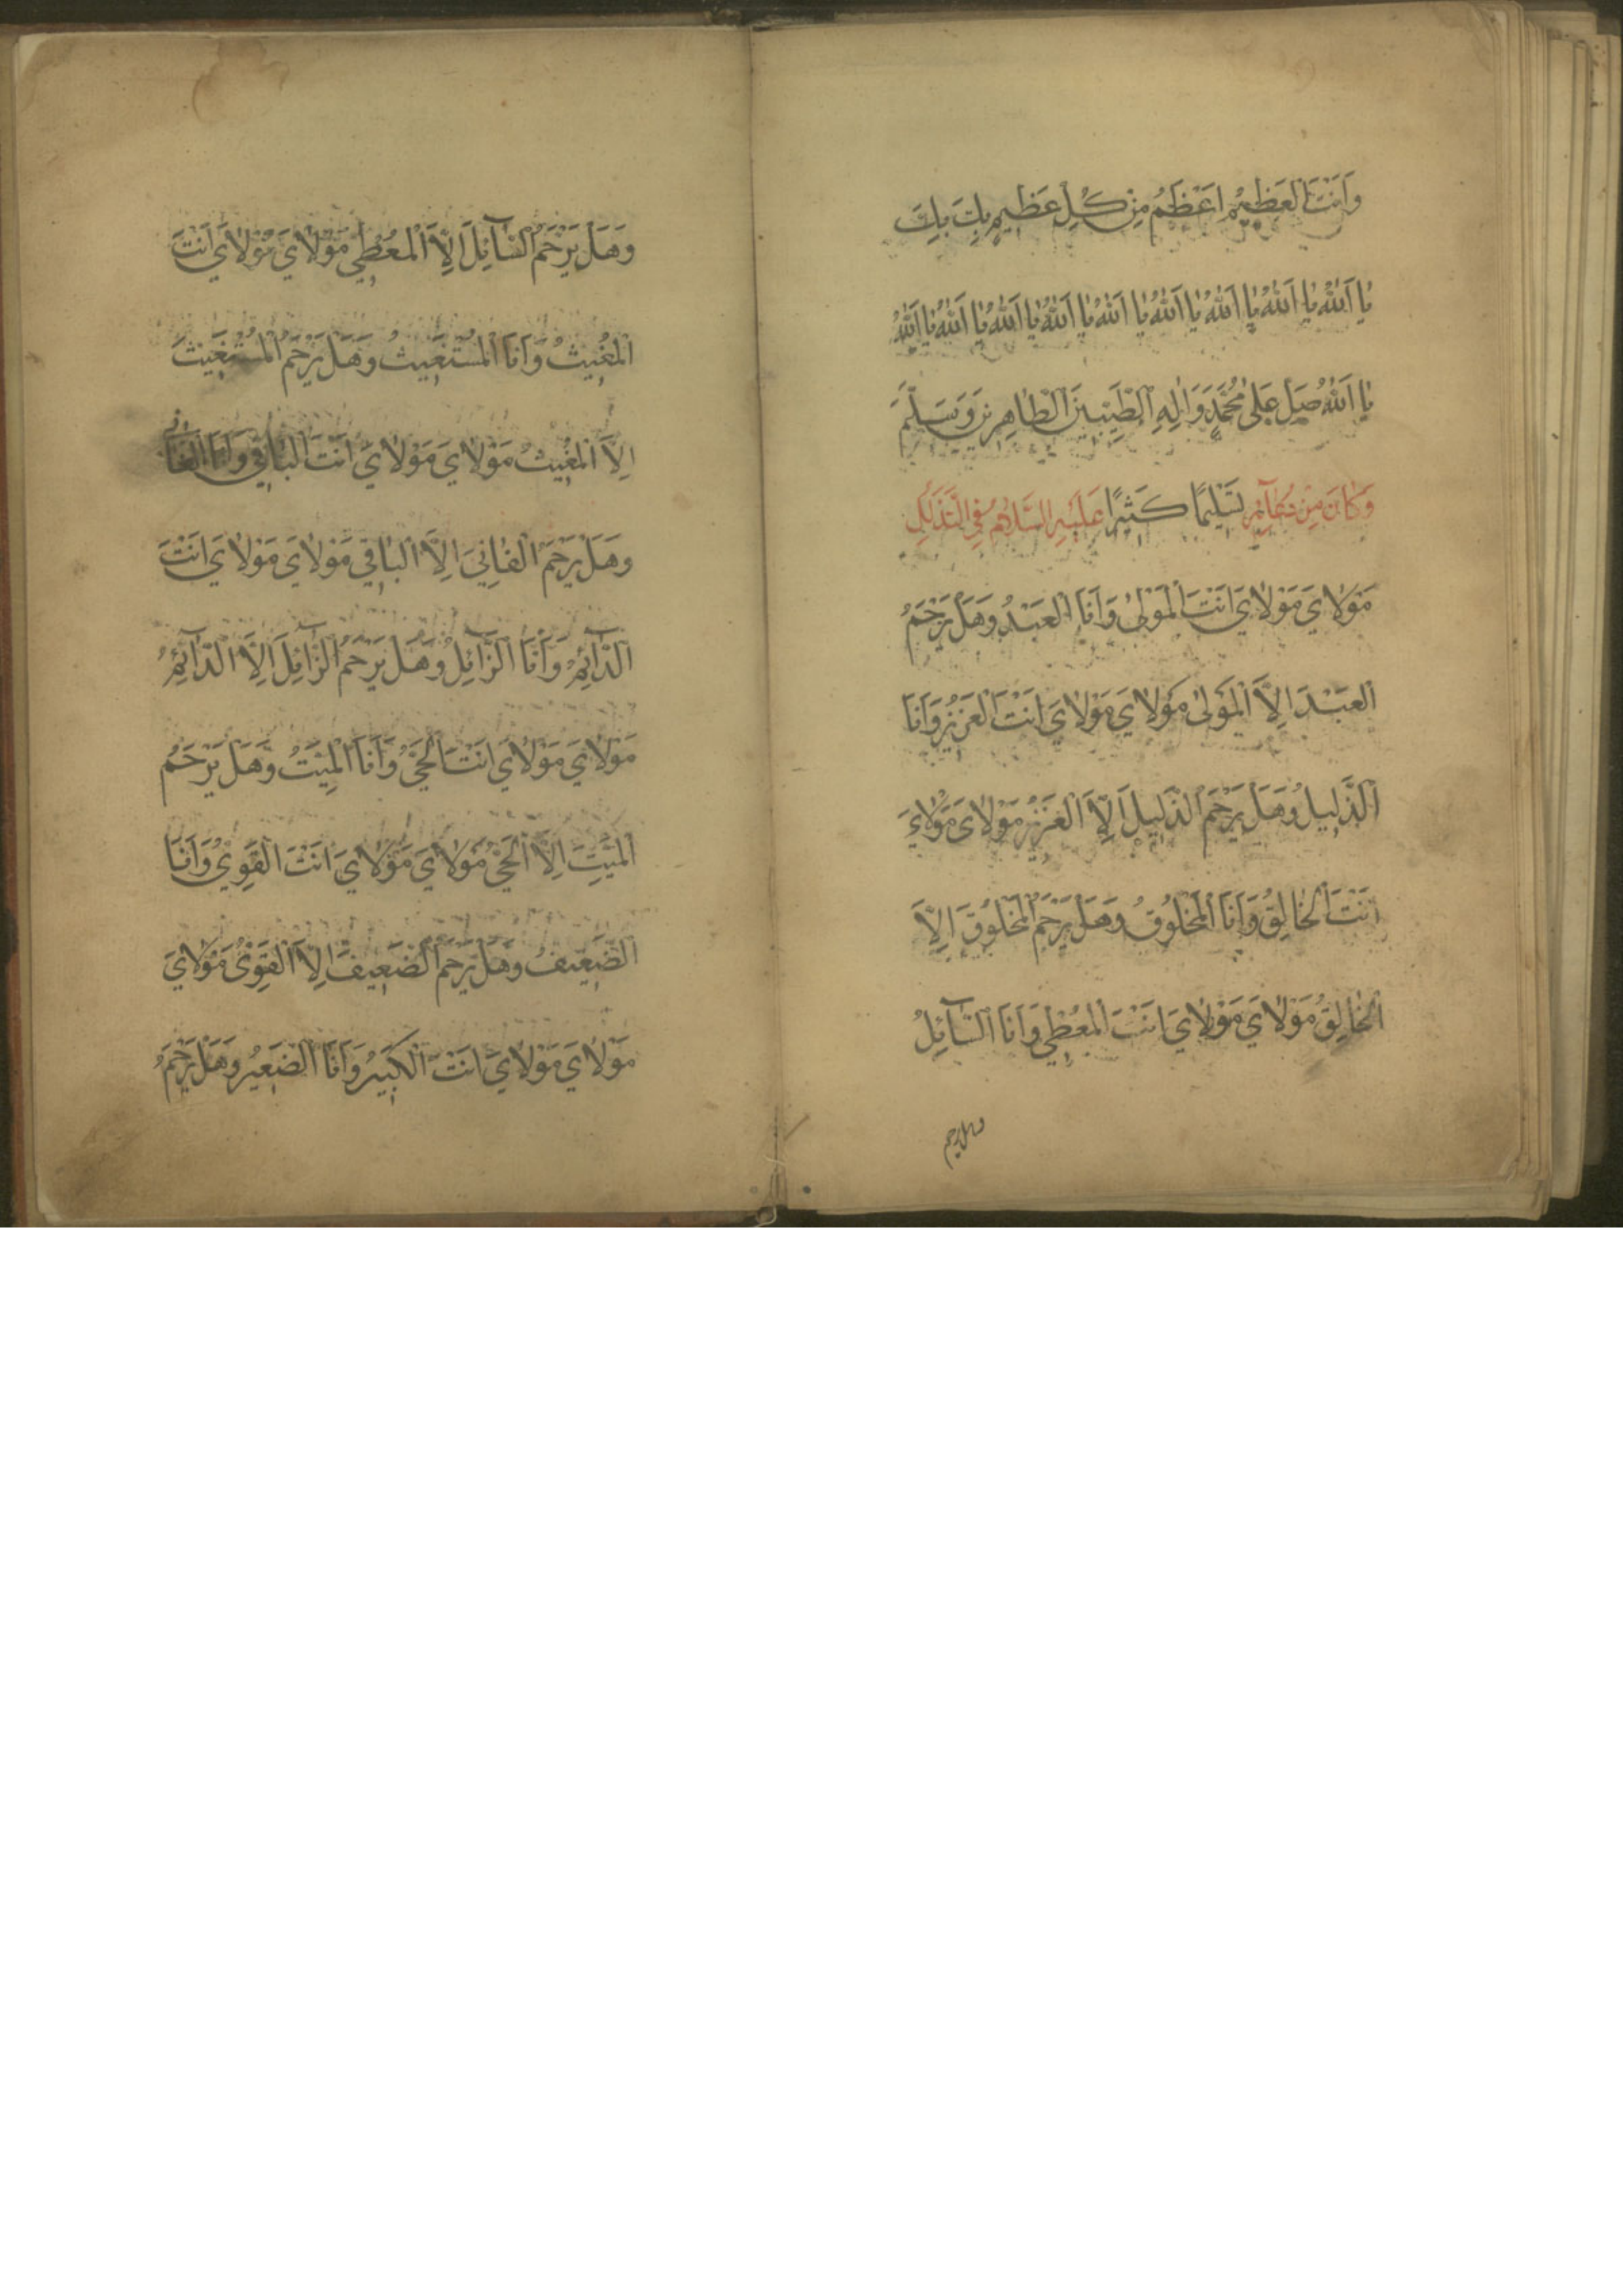 وَاَنْتَ الْعَظِيْمُ اَعْظَمُ مِنْ كُلِّ عَظِيمٍ بِكَ بِكَ
يٰا اَللّٰهُ يٰا اَللّٰهُ يٰا اَللّٰهُ يٰا اَللّٰهُ يٰا اَللّٰهُ يٰا اَللّٰهُ يٰا اَللّٰهُ يٰا اَللّٰهُ يٰا اَللّٰهُ
يٰا اَللّٰهُ صَلِّ عَلٰى مُحَمَّدٍ وَاٰلِهِ الطَّيِّبِيْنَ الطّٰاهِرِيْنَ وَسَلِّمْ
وَكٰانَ مِنْ دُعٰآئِهِ تَسْلِيْمًا كَثِيْرًا عَلَيْهِ السَّلٰامُ فِي التَّذَلُّلِ
مَوْلٰايَ مَوْلٰايَ اَنْتَ الْمَوْلىٰ وَاَنَا الْعَبْدُ وَهَلْ يَرْحَمُ
الْعَبْدَ اِلَّا الْمَوْلىٰ مَوْلٰايَ مَوْلٰايَ اَنْتَ الْعَزِيْزُ وَاَنَا
الذَّلِيلُ وَهَلْ يَرْحَمُ الذَّلِيلَ اِلَّا الْعَزِيْزُ مَوْلٰايَ مَوْلٰايَ
اَنْتَ الْخٰالِقُ وَاَنَا الْمَخْلُوقُ وَهَلْ يَرْحَمُ الْمَخْلُوقَ اِلَّا
الْخٰالِقُ مَوْلٰايَ مَوْلٰايَ اَنْتَ الْمُعْطِي وَاَنَا السّٰآئِلُ
وهل يرحم
وَهَلْ يَرْحَمُ السّٰآئِلَ اِلَّا الْمُعْطِي مَوْلٰايَ مَوْلٰايَ اَنْتَ
الْمُغِيثُ وَاَنَا الْمُسْتَغِيثُ وَهَلْ يَرْحَمُ الْمُسْتَغِيثَ
اِلَّا الْمُغِيثُ مَوْلٰايَ مَوْلٰايَ اَنْتَ الْبٰاقِي وَاَنَا الْفٰانِي
وَهَلْ يَرْحَمُ الْفٰانِيَ اِلَّا الْبٰاقِي مَوْلٰايَ مَوْلٰايَ اَنْتَ
الدّٰآئِمُ وَاَنَا الزّٰآئِلُ وَهَلْ يَرْحَمُ الزّٰآئِلَ اِلَّا الدّٰآئِمُ
مَوْلٰايَ مَوْلٰايَ اَنْتَ الْحَيُّ وَاَنَا الْمَيِّتُ وَهَلْ يَرْحَمُ
الْمَيِّتَ اِلَّا الْحَيُّ مَوْلٰايَ مَوْلٰايَ اَنْتَ الْقَوِيُّ وَاَنَا
الضَّعِيفُ وَهَلْ يَرْحَمُ الضَّعِيفَ اِلَّا الْقَوِيُّ مَوْلٰايَ
مَوْلٰايَ مَوْلٰايَ اَنْتَ الْكَبِيْرُ وَاَنَا الصَّغِيْرُ وَهَلْ يَرْحَمُ